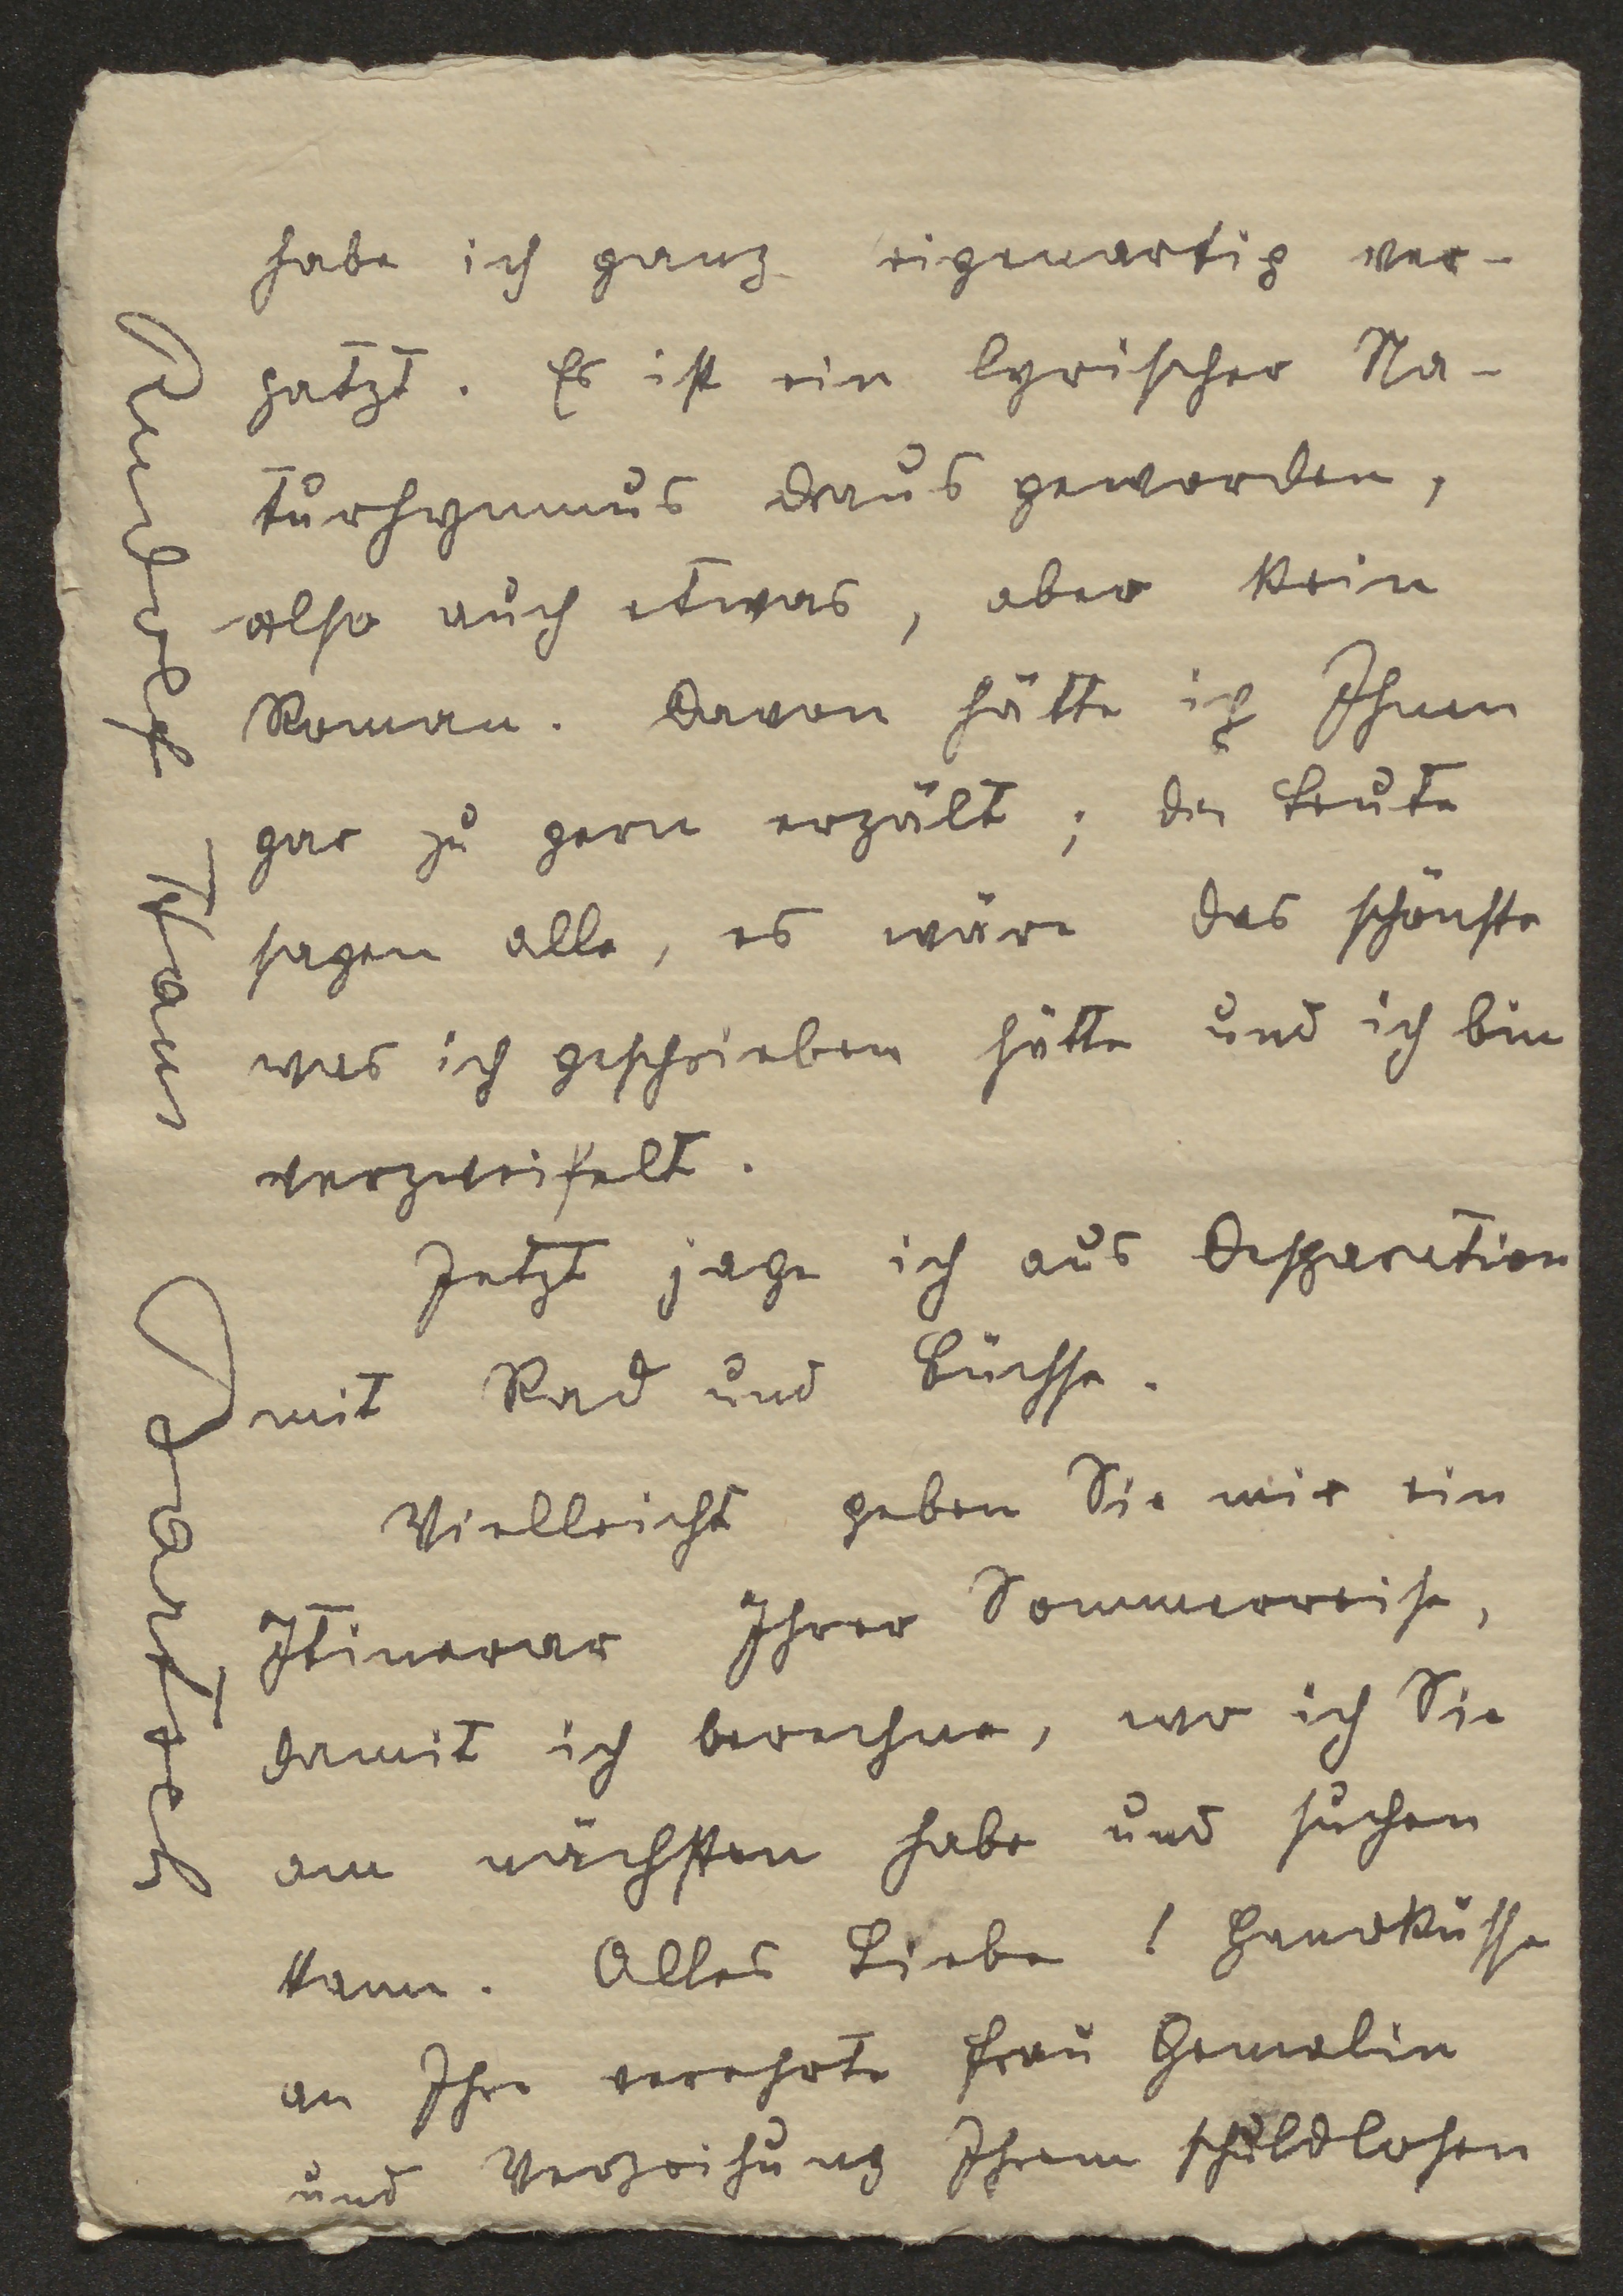 habe ich ganz eigenartig ver-
patzt. Es ist ein lyrischer Na-
turhymnus draus geworden,
also auch etwas, aber kein
Roman. Davon hätte ich Ihnen
gar zu gern erzält; die Leute
sagen alle, es wäre das schönste
was ich geschrieben hätte und ich bin
verzweifelt.
Jetzt jage ich aus Desparation
mit Rad und Büchse.
Vielleicht geben Sie mir ein
Itinerar Ihrer Sommerreise,
damit ich berechne, wo ich Sie
am nächsten habe und suchen
kann. Alles Liebe! Handküsse
an Ihre verehrte Frau Gemalin
und Verzeihung Ihrem schuldlosen
Rudolf Hans Bartsch